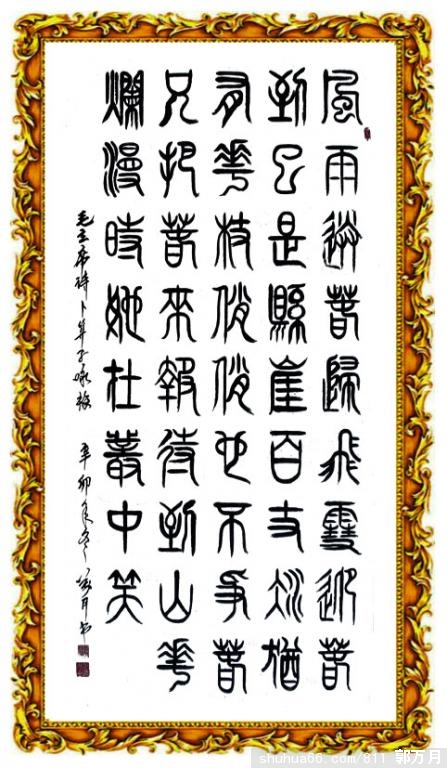 風雨送春歸飛雪迎春
到已是縣崖百丈冰猶
有花枝俏俏也不爭春
只把春來報待到山花
爛漫時她在叢中笑
毛主席詩卜算子咏梅 辛卯年冬 萬月書
shuhua66.com/811 郭万月